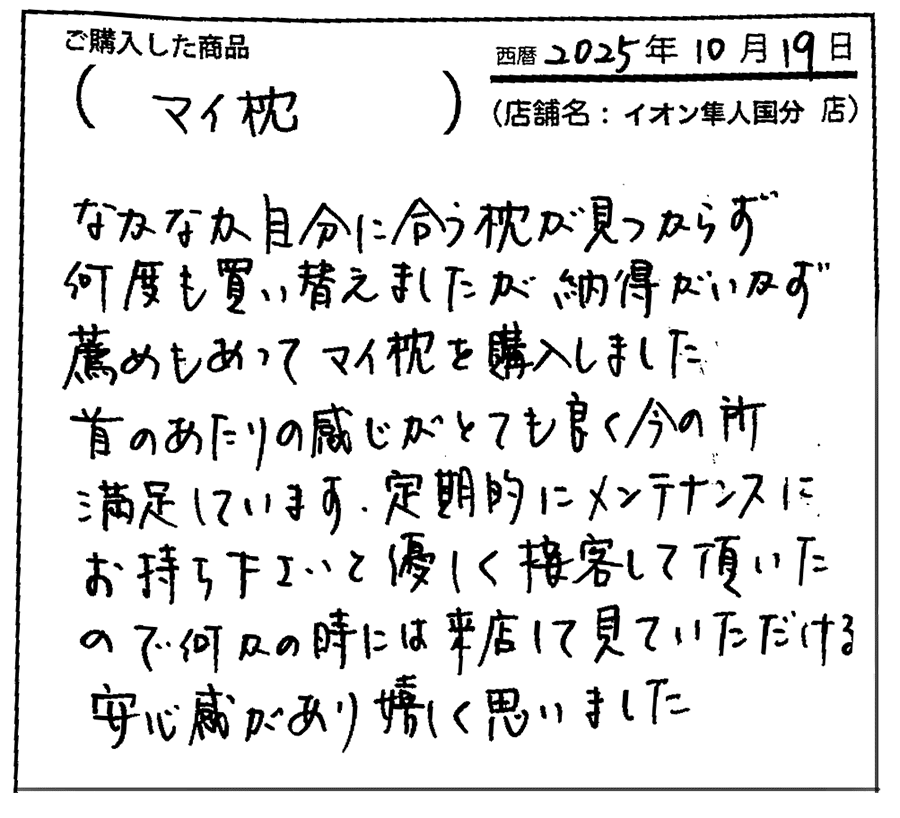 ご購入した商品
西暦 2025年 10月 19日
( マイ枕 )
(店舗名：イオン隼人国分 店)
なかなか自分に合う枕が見つからず
何度も買い替えましたが納得がいかず
薦めもあってマイ枕を購入しました
首のあたりの感じがとても良く今の所
満足しています.定期的にメンテナンスに
お持ち下さいと優しく接客して頂いた
ので何かの時には来店して見ていただける
安心感があり嬉しく思いました